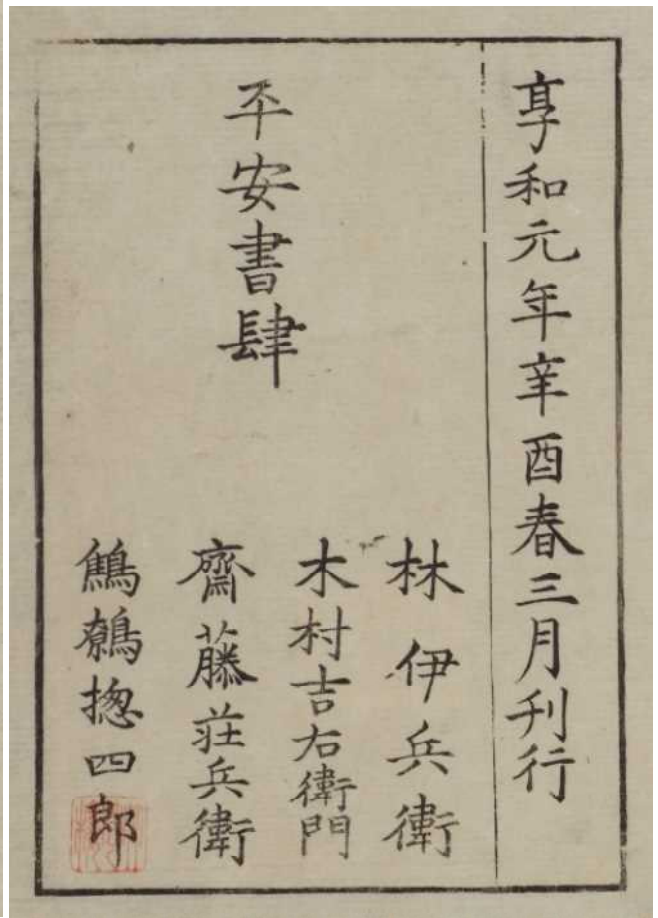 享和元年辛酉春三月刊行
平安書肆
林伊兵衛
木村吉右衛門
齋藤莊兵衛
鷦鷯摠四郎